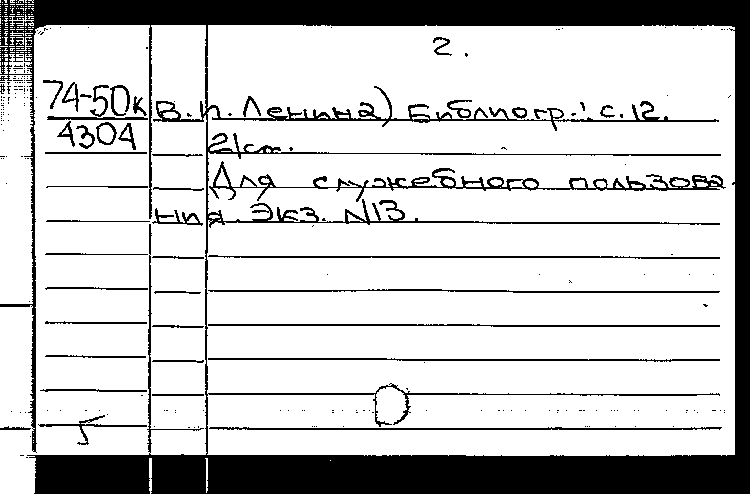 2.
74-50к В.И. Ленина) Библиогр.: с. 12.
4304 21см.
Для служебного пользова
ния. Экз. N13.
5